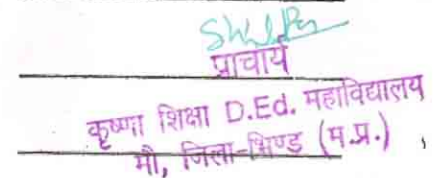 प्राचार्य
कृष्णा शिक्षा D.Ed. महाविद्यालय
मौ, जिला-भिण्ड (म.प्र.)